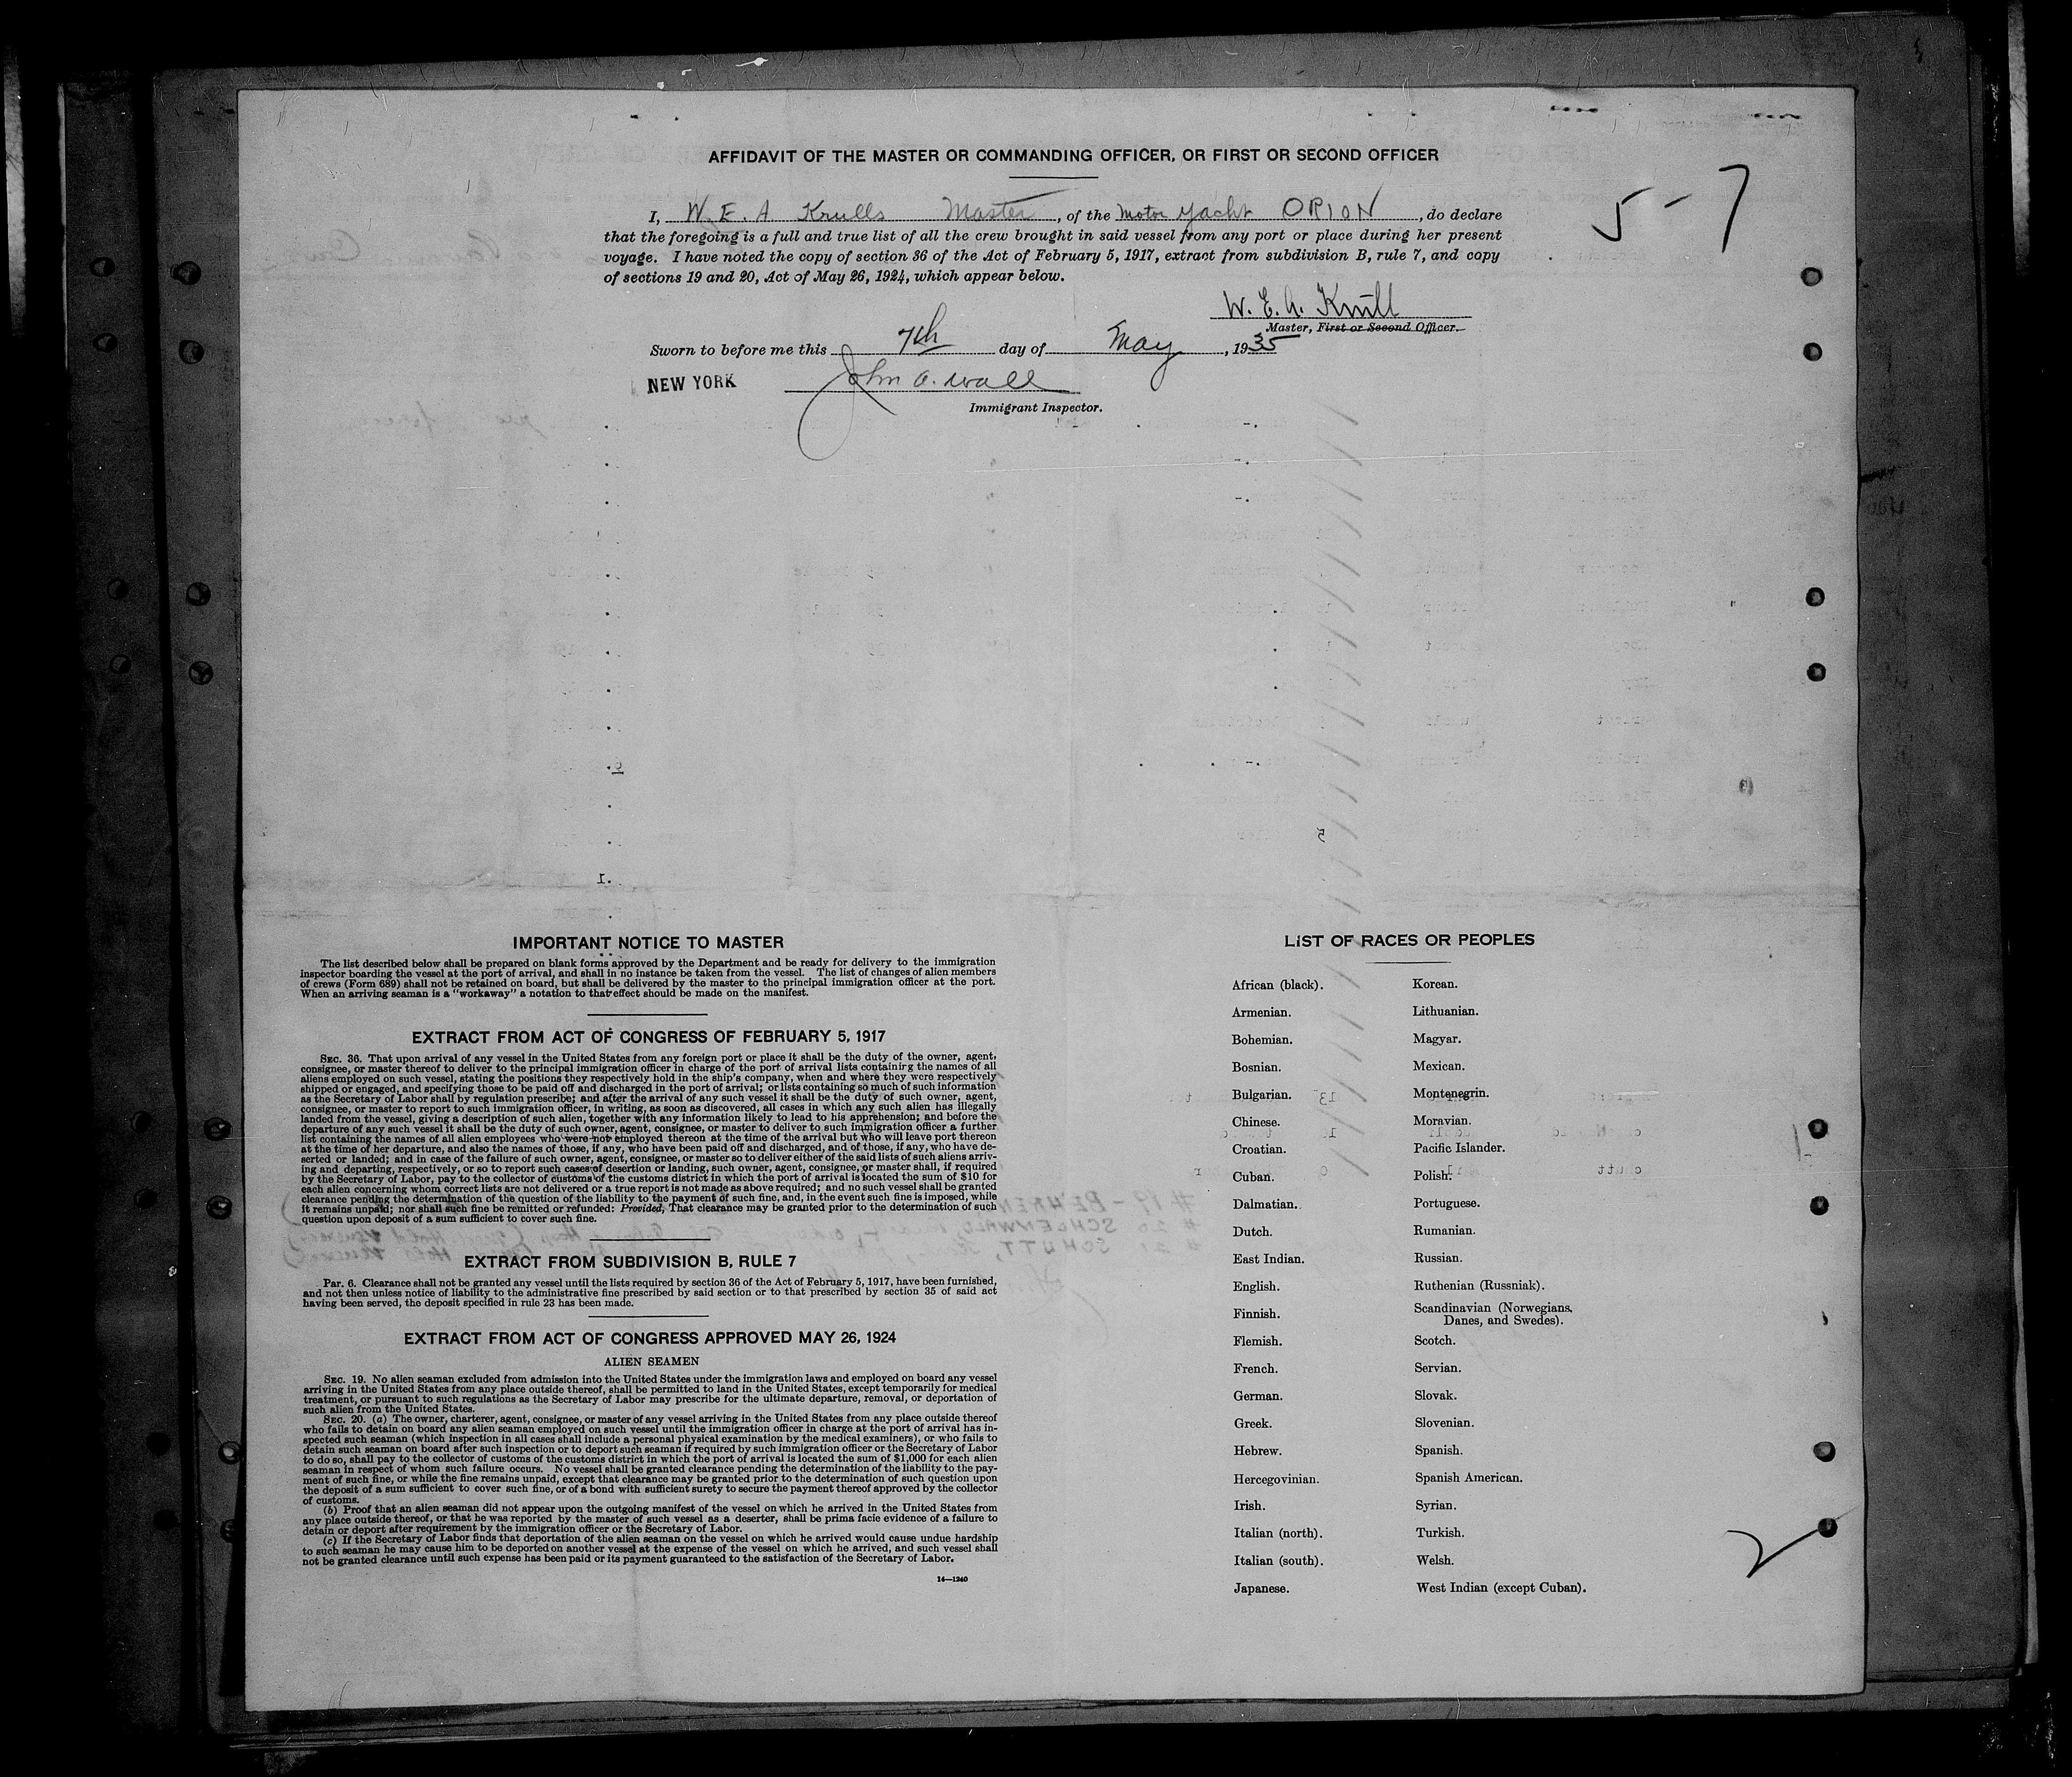 AFFIDAVIT OF THE MASTER OR COMMANDING OFFICER, OR FIRST OR SECOND OFFICER
5-7
I, W. E. A. Krulls Master, of the Motor Yacht ORION, do declare
that the foregoing is a full and true list of all the crew brought in said vessel from any port or place during her present
voyage. I have noted the copy of section 36 of the Act of February 5, 1917, extract from subdivision B, rule 7, and copy
of sections 19 and 20, Act of May 26, 1924, which appear below.
W. E. A. Krull
Master, First or Second Officer.
Sworn to before me this 7th day of May, 1935
NEW YORK John A. Wall
Immigrant Inspector.
IMPORTANT NOTICE TO MASTER
The list described below shall be prepared on blank forms approved by the Department and be ready for delivery to the immigration
inspector boarding the vessel at the port of arrival, and shall in no instance be taken from the vessel. The list of changes of alien members
of crews (Form 689) shall not be retained on board, but shall be delivered by the master to the principal immigration officer at the port.
When an arriving seaman is a "workaway" a notation to that effect should be made on the manifest.
EXTRACT FROM ACT OF CONGRESS OF FEBRUARY 5, 1917
SEC. 36. That upon arrival of any vessel in the United States from any foreign port or place it shall be the duty of the owner, agent,
consignee, or master thereof to deliver to the principal immigration officer in charge of the port of arrival lists containing the names of all
aliens employed on such vessel, stating the positions they respectively hold in the ship's company, when and where they were respectively
shipped or engaged, and specifying those to be paid off and discharged in the port of arrival; or lists containing so much of such information
as the Secretary of Labor shall by regulation prescribe; and after the arrival of any such vessel it shall be the duty of such owner, agent,
consignee, or master to report to such immigration officer, in writing, as soon as discovered, all cases in which any such alien has illegally
landed from the vessel, giving a description of such alien, together with any information likely to lead to his apprehension; and before the
departure of any such vessel it shall be the duty of such owner, agent, consignee, or master to deliver to such immigration officer a further
list containing the names of all alien employees who were not employed thereon at the time of the arrival but who will leave port thereon
at the time of her departure, and also the names of those, if any, who have been paid off and discharged, and of those, if any, who have de-
serted or landed; and in case of the failure of such owner, agent, consignee, or master so to deliver either of the said lists of such aliens arriv-
ing and departing, respectively, or so to report such cases of desertion or landing, such owner, agent, consignee, or master shall, if required
by the Secretary of Labor, pay to the collector of customs of the customs district in which the port of arrival is located the sum of $10 for
each alien concerning whom correct lists are not delivered or a true report is not made as above required; and no such vessel shall be granted
clearance pending the determination of the question of the liability to the payment of such fine, and, in the event such fine is imposed, while
it remains unpaid; nor shall such fine be remitted or refunded: Provided, That clearance may be granted prior to the determination of such
question upon deposit of a sum sufficient to cover such fine.
EXTRACT FROM SUBDIVISION B, RULE 7
Par. 6. Clearance shall not be granted any vessel until the lists required by section 36 of the Act of February 5, 1917, have been furnished,
and not then unless notice of liability to the administrative fine prescribed by said section or to that prescribed by section 35 of said act
having been served, the deposit specified in rule 23 has been made.
EXTRACT FROM ACT OF CONGRESS APPROVED MAY 26, 1924
ALIEN SEAMEN
SEC. 19. No alien seaman excluded from admission into the United States under the immigration laws and employed on board any vessel
arriving in the United States from any place outside thereof, shall be permitted to land in the United States, except temporarily for medical
treatment, or pursuant to such regulations as the Secretary of Labor may prescribe for the ultimate departure, removal, or deportation of
such alien from the United States.
SEC. 20. (a) The owner, charterer, agent, consignee, or master of any vessel arriving in the United States from any place outside thereof
who fails to detain on board any alien seaman employed on such vessel until the immigration officer in charge at the port of arrival has in-
spected such seaman (which inspection in all cases shall include a personal physical examination by the medical examiners), or who fails to
detain such seaman on board after such inspection or to deport such seaman if required by such immigration officer or the Secretary of Labor
to do so, shall pay to the collector of customs of the customs district in which the port of arrival is located the sum of $1,000 for each alien
seaman in respect of whom such failure occurs. No vessel shall be granted clearance pending the determination of the liability to the pay-
ment of such fine, or while the fine remains unpaid, except that clearance may be granted prior to the determination of such question upon
the deposit of a sum sufficient to cover such fine, or of a bond with sufficient surety to secure the payment thereof approved by the collector
of customs.
(b) Proof that an alien seaman did not appear upon the outgoing manifest of the vessel on which he arrived in the United States from
any place outside thereof, or that he was reported by the master of such vessel as a deserter, shall be prima facie evidence of a failure to
detain or deport after requirement by the immigration officer or the Secretary of Labor.
(c) If the Secretary of Labor finds that deportation of the alien seaman on the vessel on which he arrived would cause undue hardship
to such seaman he may cause him to be deported on another vessel at the expense of the vessel on which he arrived, and such vessel shall
not be granted clearance until such expense has been paid or its payment guaranteed to the satisfaction of the Secretary of Labor.
14—1240
LIST OF RACES OR PEOPLES
African (black).
Armenian.
Bohemian.
Bosnian.
Bulgarian.
Chinese.
Croatian.
Cuban.
Dalmatian.
Dutch.
East Indian.
English.
Finnish.
Flemish.
French.
German.
Greek.
Hebrew.
Hercegovinian.
Irish.
Italian (north).
Italian (south).
Japanese.
Korean.
Lithuanian.
Magyar.
Mexican.
Montenegrin.
Moravian.
Pacific Islander.
Polish.
Portuguese.
Rumanian.
Russian.
Ruthenian (Russniak).
Scandinavian (Norwegians,
Danes, and Swedes).
Scotch.
Servian.
Slovak.
Slovenian.
Spanish.
Spanish American.
Syrian.
Turkish.
Welsh.
West Indian (except Cuban).
2